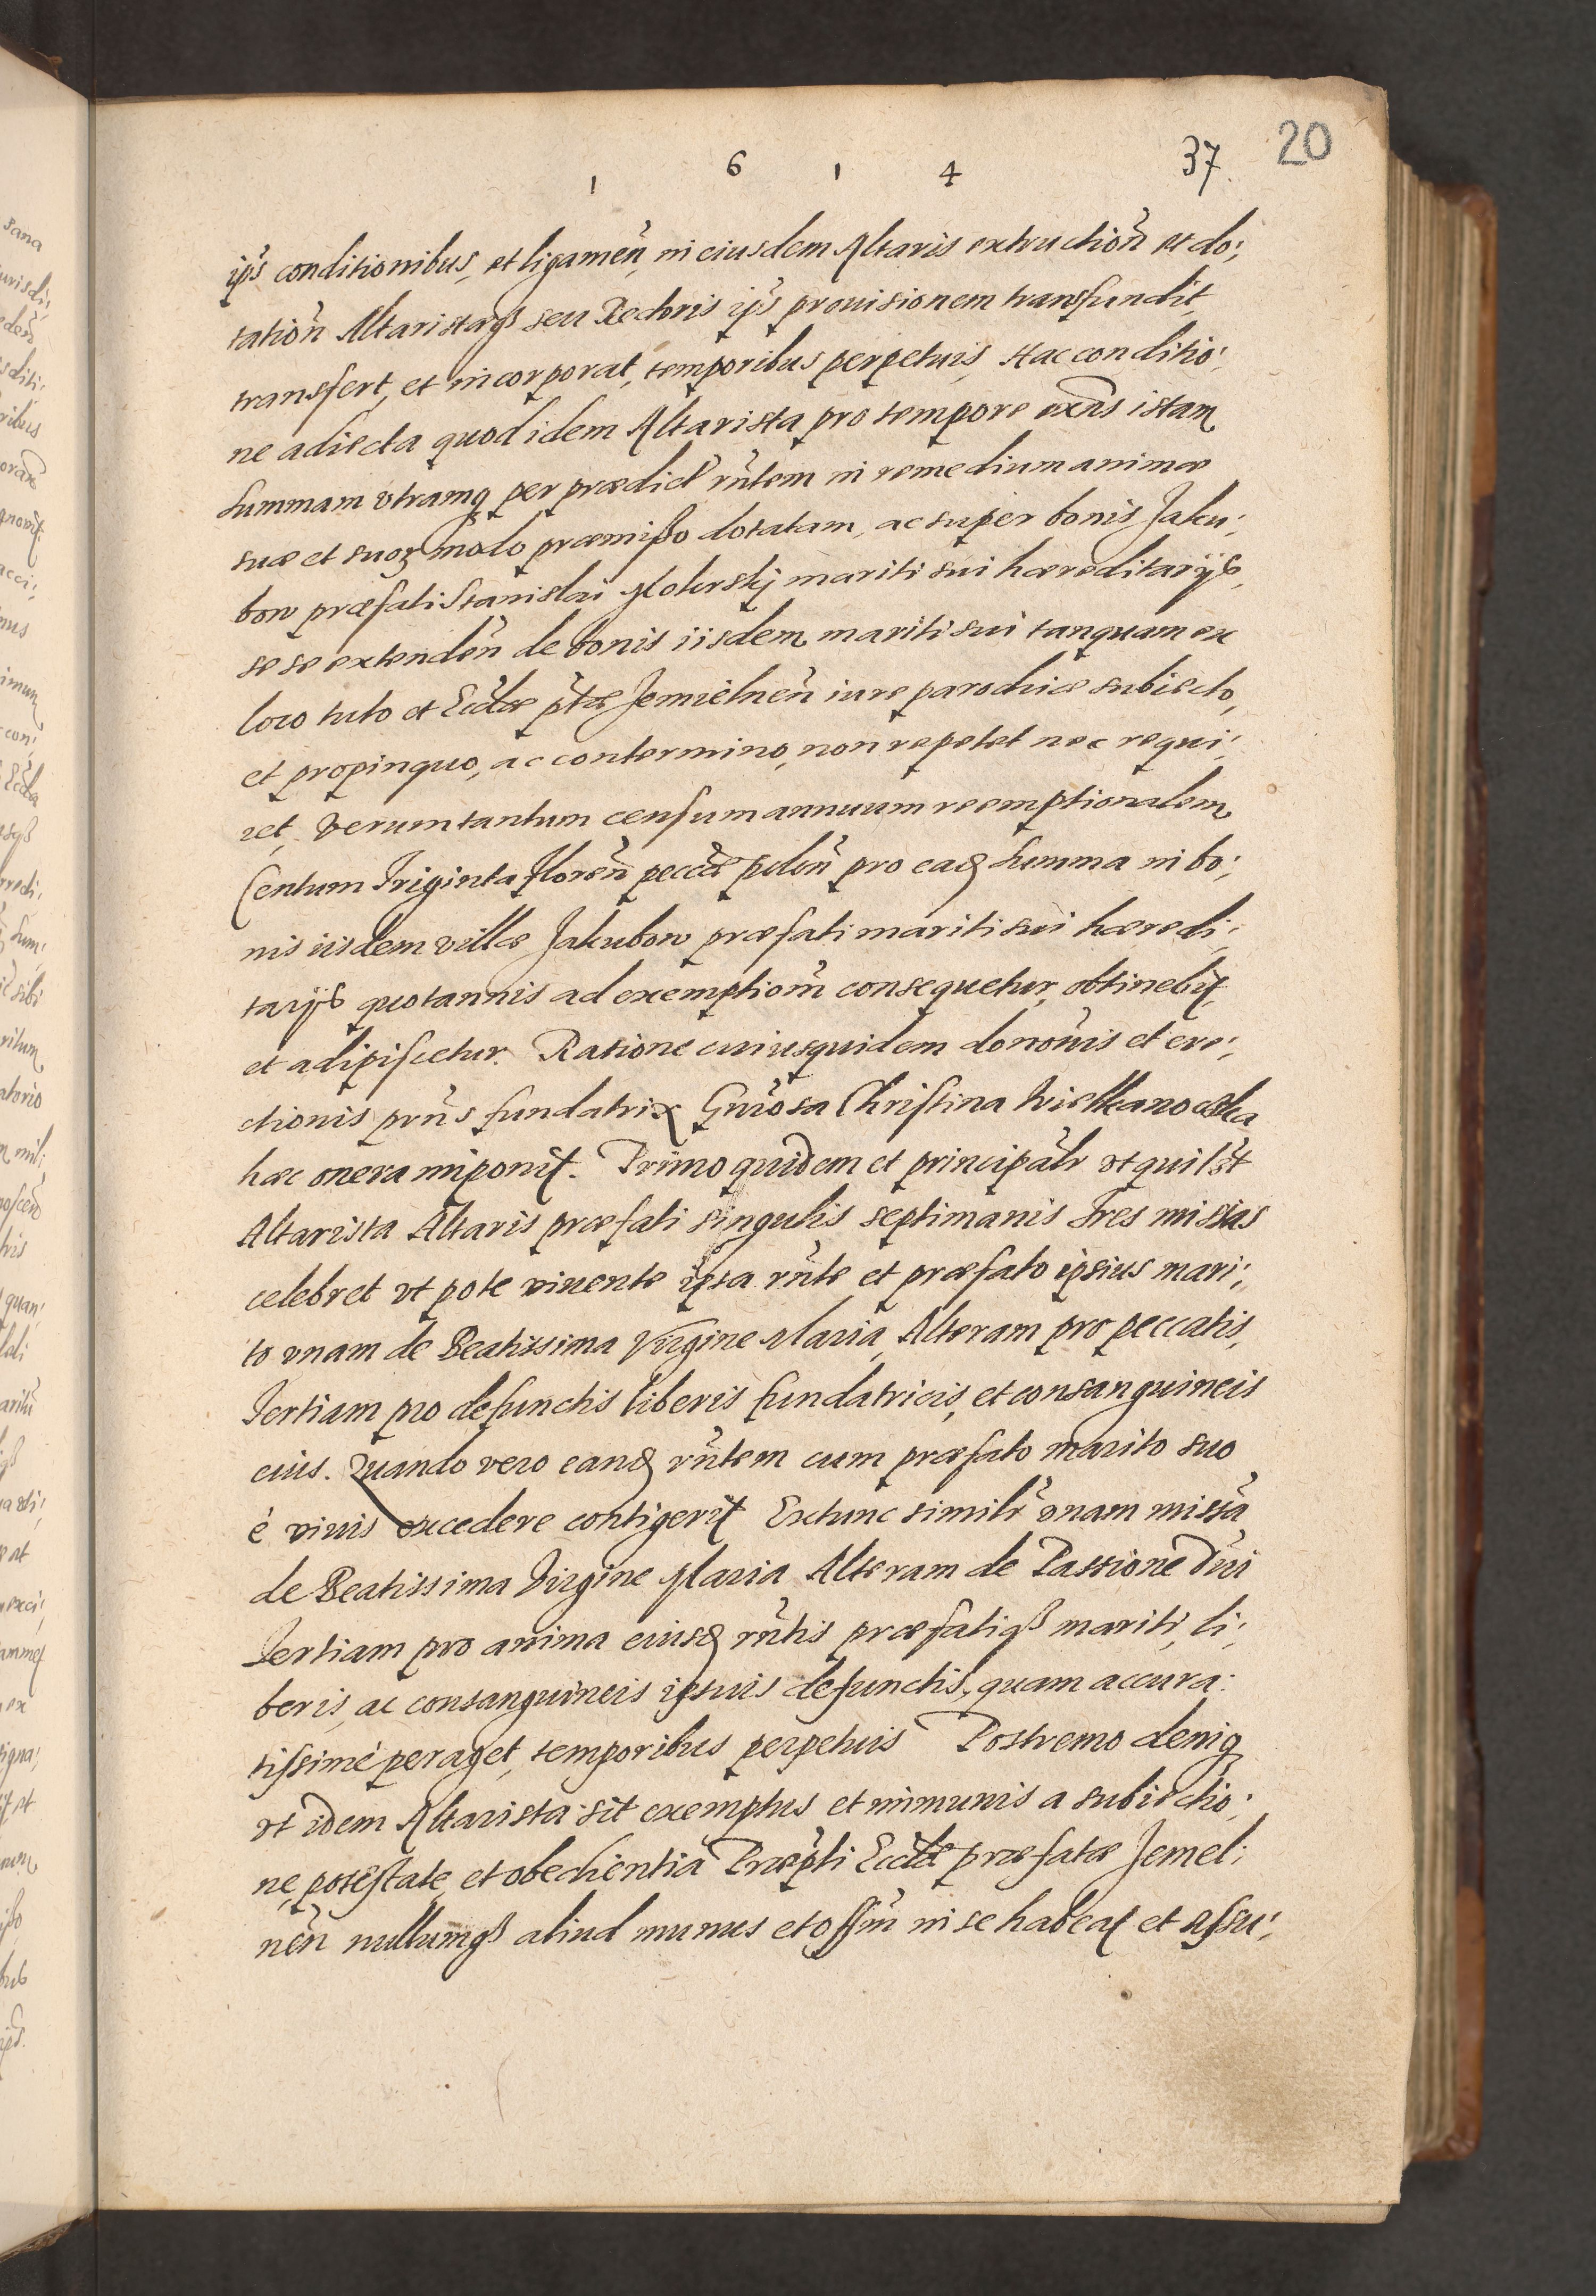 1 6 1 4 37 20
ips conditionibus, et ligamen, in eiusdem Altaris extruction et do;
tation Altaristaeqз seu Rectoris ips prouisionem transfundit,
transfert, et incorporat, temporibus perpetuis, Hac conditio;
ne adiecta quod idem Altarista pro tempore exns istam
summam vtramqз per praedict rntem in remedium animae
suae et suoꝝ modo praemißo dotatam, ac super bonis Jaku;
bow praefati Stanislai Mokrskj mariti sui haereditarijs,
sese extenden de bonis iisdem mariti sui tanquam ex
loco tuto et Ecclae ptae Jemielnen iure parochiae subiecto,
et propinquo, ac contermino, non repetet nec requi;
ret, Verum tantum censum annuum reemptionalem
Centum Triginta Floren peccae polon pro eadз summa in bo;
nis iisdem villae Jakubow praefati mariti sui haeredi;
tarijs quotannis ad exemptiom consequetur, obtinebit,
et adipiscetur. Ratione cuiusquidem dononis et ere;
ctionis prns fundatrix Gnrosa Christina
haec onera imponit. Primo quidem et principalr vt quilibt
Altarista Altaris praefati singulis septimanis Tres missas
celebret vt pote viuente ipsa rnte et praefato ipsius mari;
to vnam de Beatissima Virgine Maria, Alteram pro peccatis,
Tertiam pro defunctis liberis fundatricis, et consanguineis
eius. Quando vero eandз rntem cum praefato marito suo
è viuis excedere contigerit Extunc similr vnam missa
de Beatissima Virgine Maria Alteram de Passione Dni
Tertiam pro anima eiusdз rntis praefatiqз mariti, li;
beris, ac consanguineis ipsius defunctis, quam accura:
tissimè peraget, temporibus perpetuis Postremo deniqз
vt idem Altarista sit exemptus et immunis a subiectio;
ne, potestate, et obedientia Praepti Ecclae praefatae Jemel;
nen nullumqз aliud munus et offm in se habeat et assu;